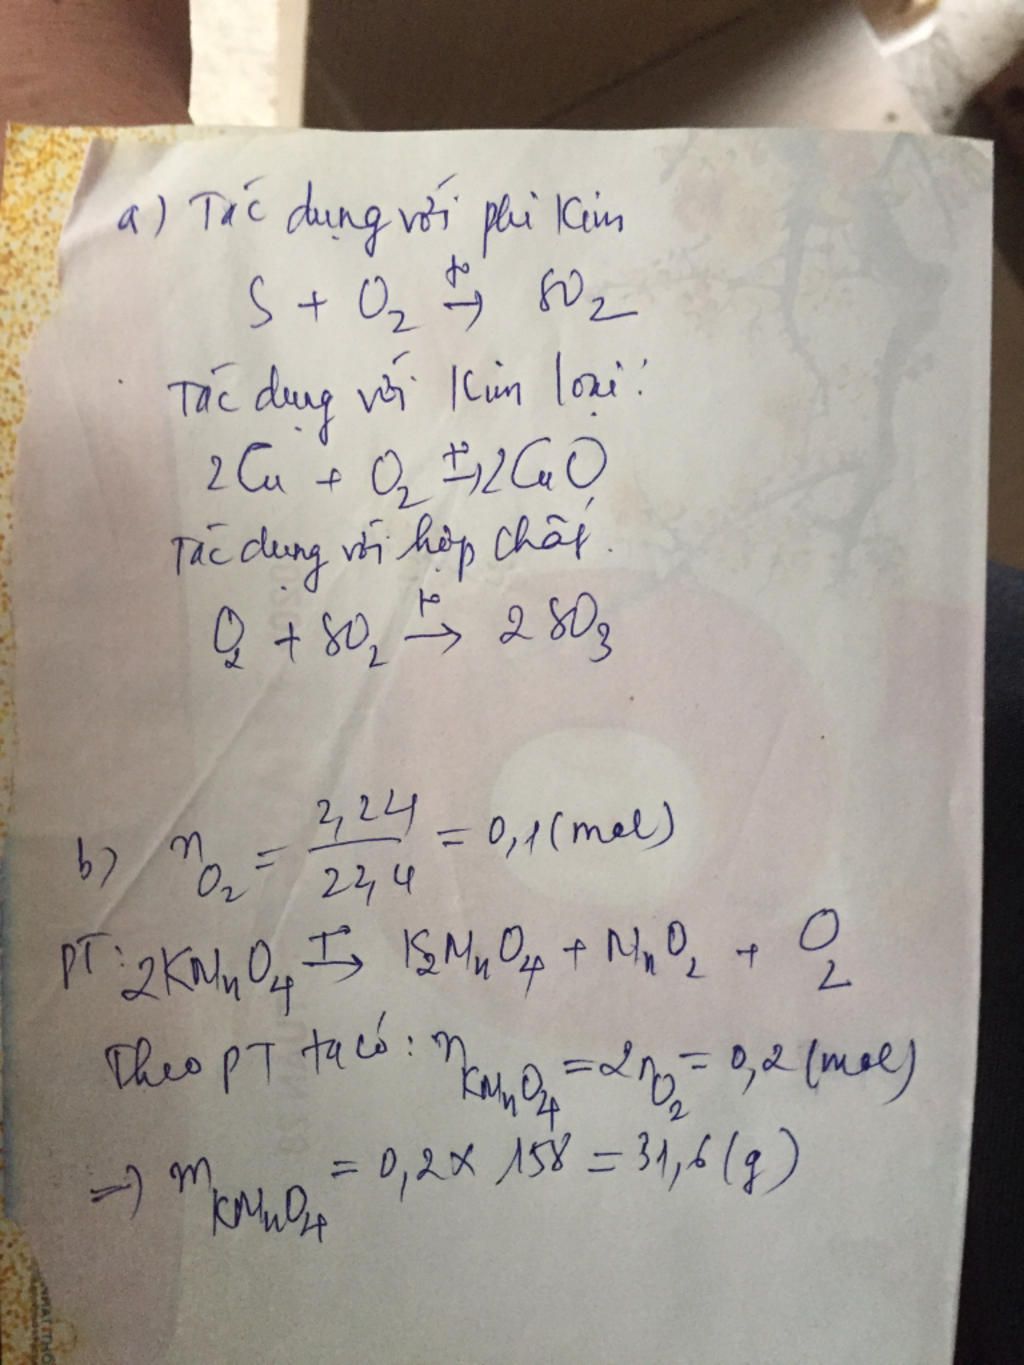 a) Tác dụng với phi kim
S + O₂ →(t°) SO₂
Tác dụng với kim loại:
2Cu + O₂ →(t°) 2CuO
Tác dụng với hợp chất.
O₂ + SO₂ →(t°) 2SO₃
b) n_O₂ = 2,24/22,4 = 0,1 (mol)
PT: 2KMnO₄ →(t°) K₂MnO₄ + MnO₂ + O₂
Theo PT ta có: n_KMnO₄ = 2n_O₂ = 0,2 (mol)
=> m_KMnO₄ = 0,2 x 158 = 31,6 (g)